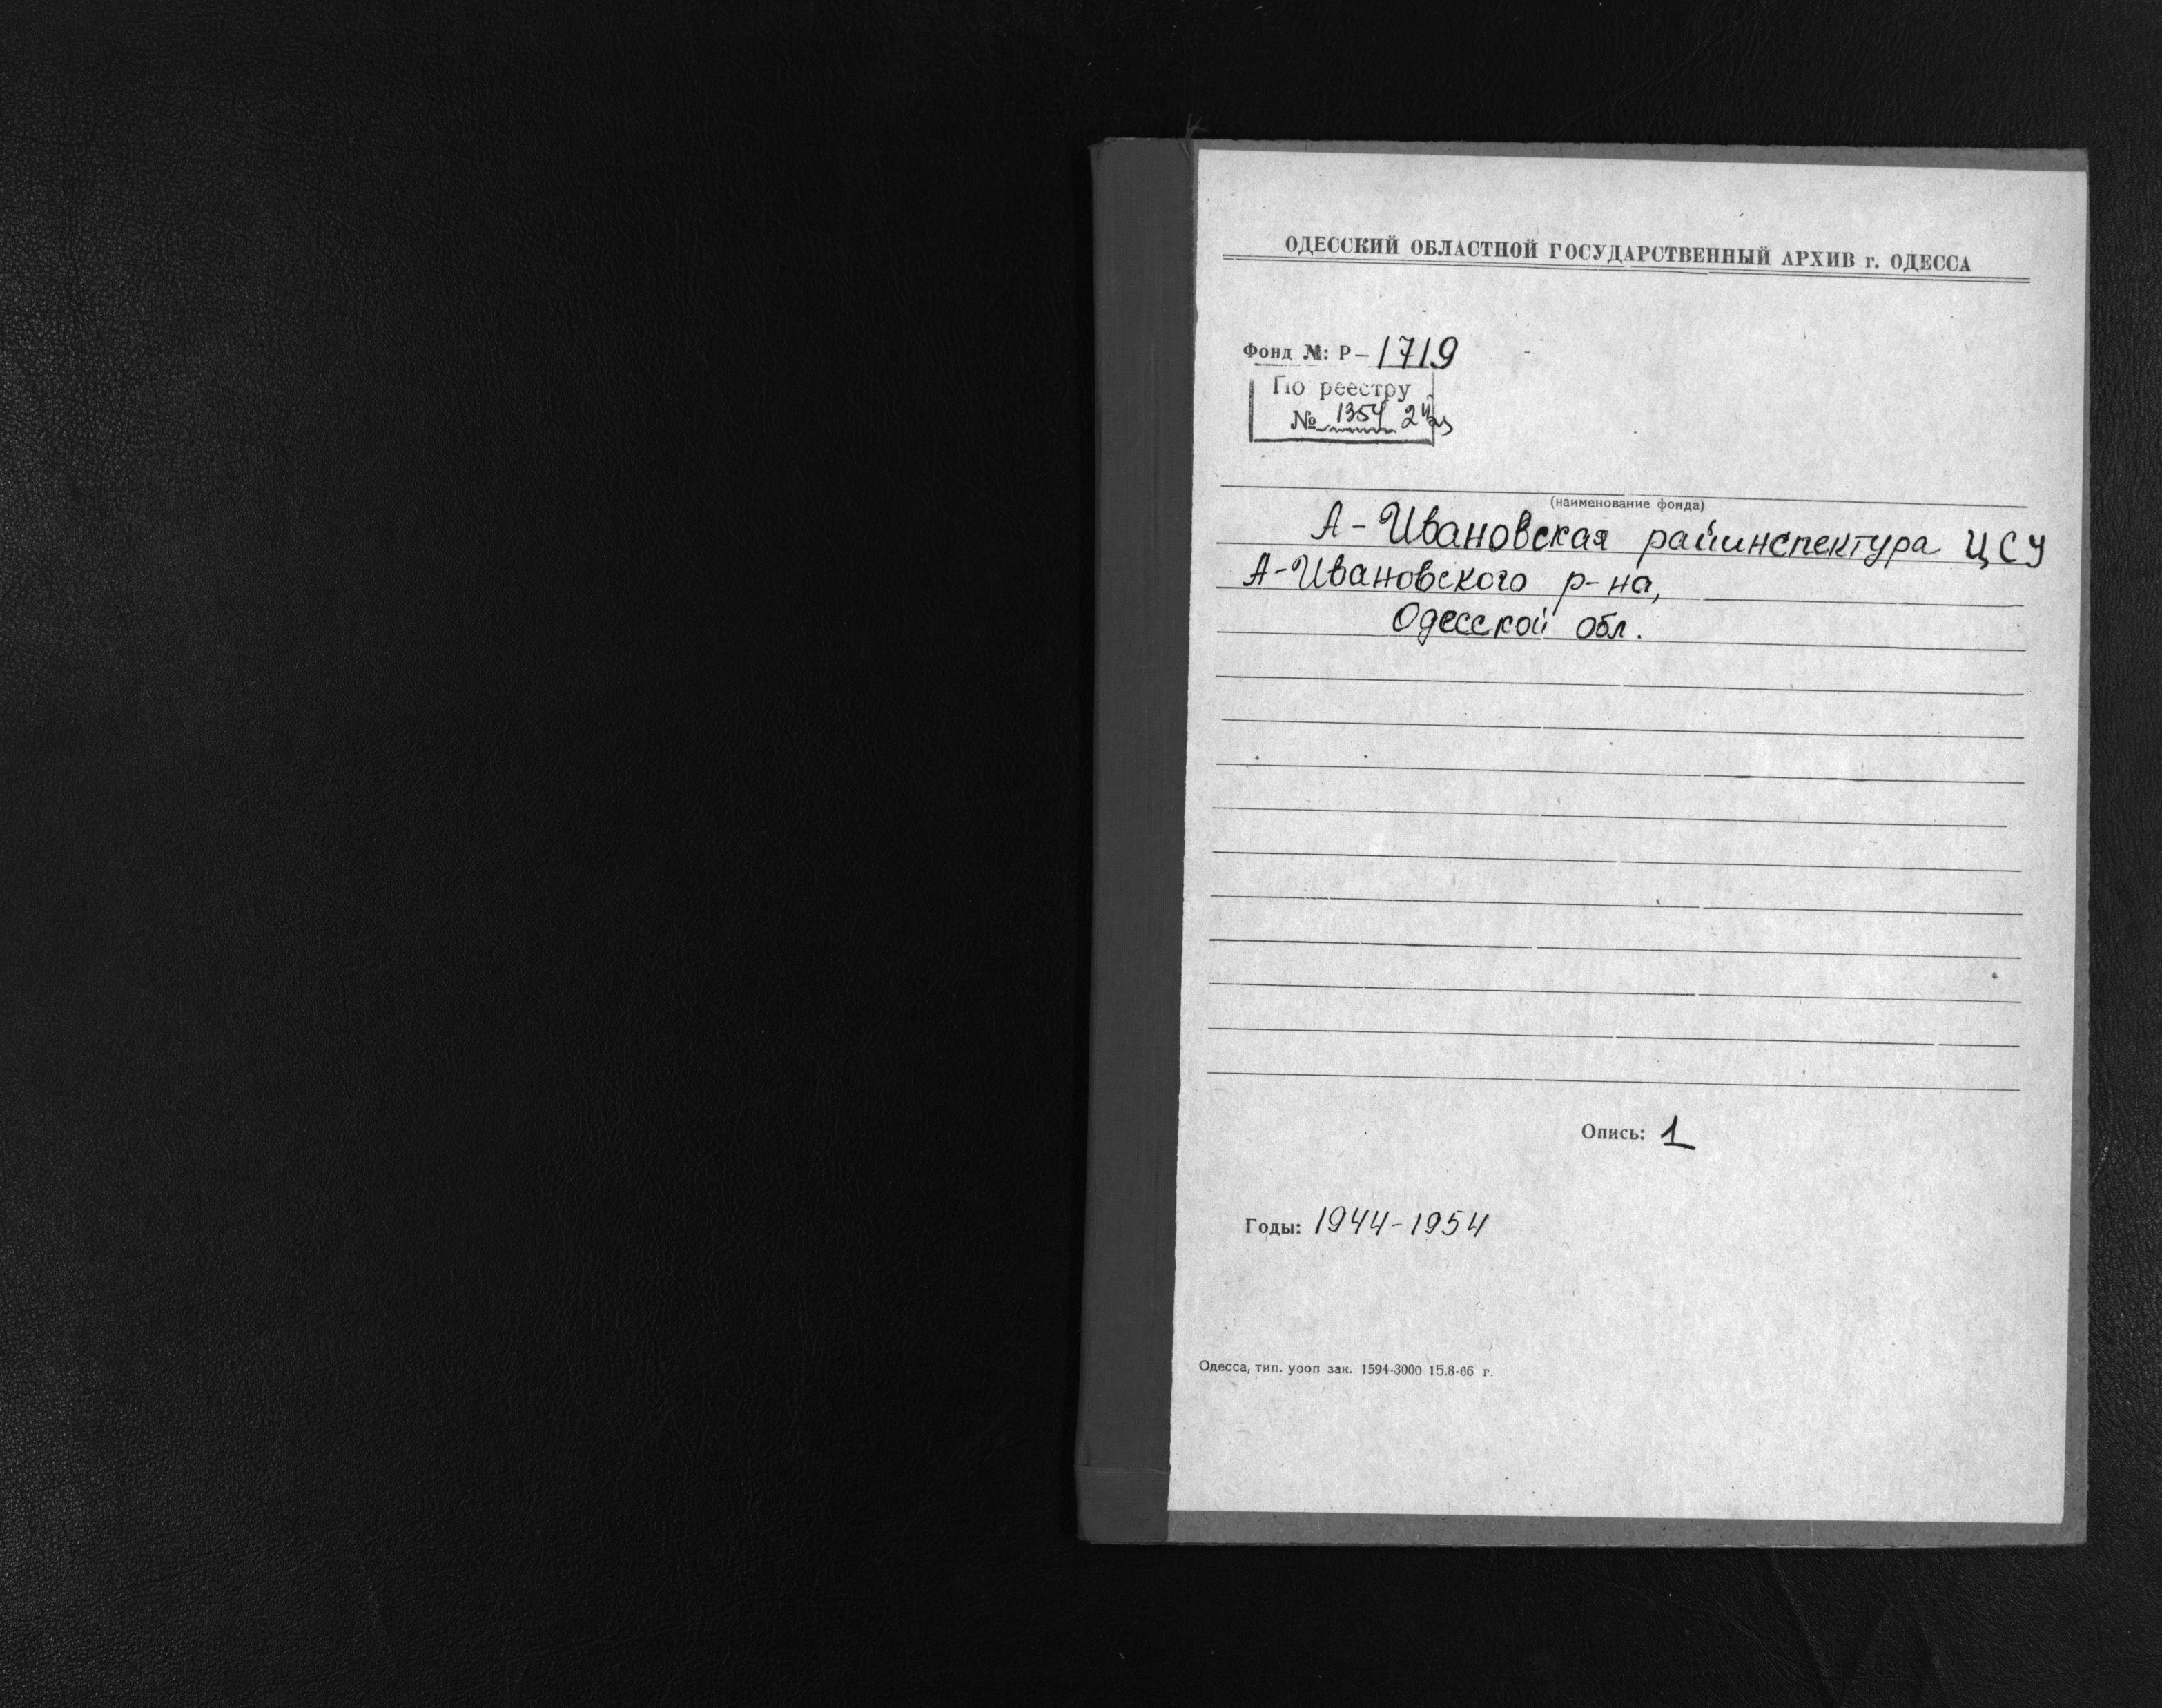 ОДЕССКИЙ ОБЛАСТНОЙ ГОСУДАРСТВЕННЫЙ АРХИВ г. ОДЕССА
Фонд №: Р-1719
По реестру
№ 1354
(наименование фонда)
А-Ивановская райинспектура ЦСУ
А-Ивановского р-на,
Одесской обл.
Опись: 1
Годы: 1944-1954
Одесса, тип. уооп зак. 1594-3000 15.8-66 г.